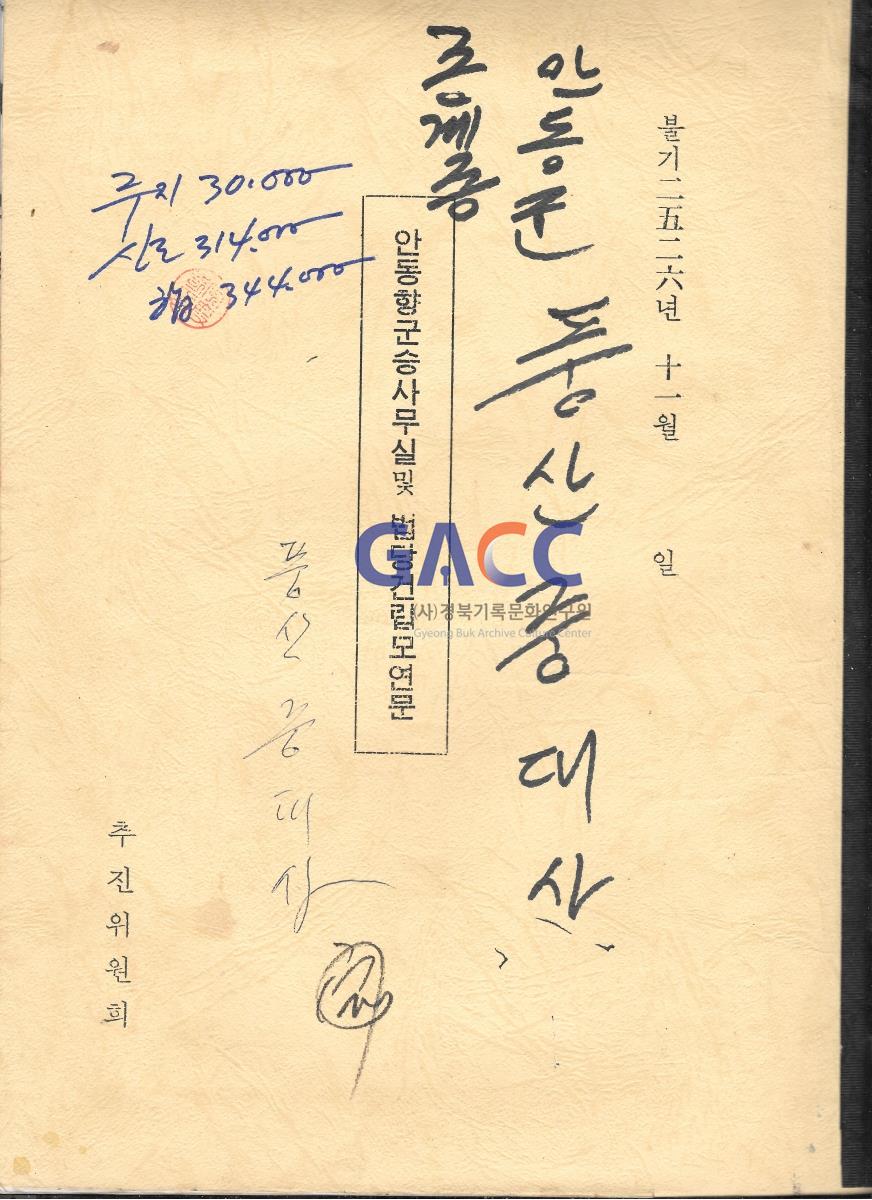 불기二五二六년 十一월 일
안동군 풍산 중대사
조계종
안동향군승사무실및 법당건립모연문
풍산 중대사
주지 30.000
신도 314.000
합 344.000
추진위원회
GACC
(사)경북기록문화연구원
Gyeong Buk Archive Culture Center